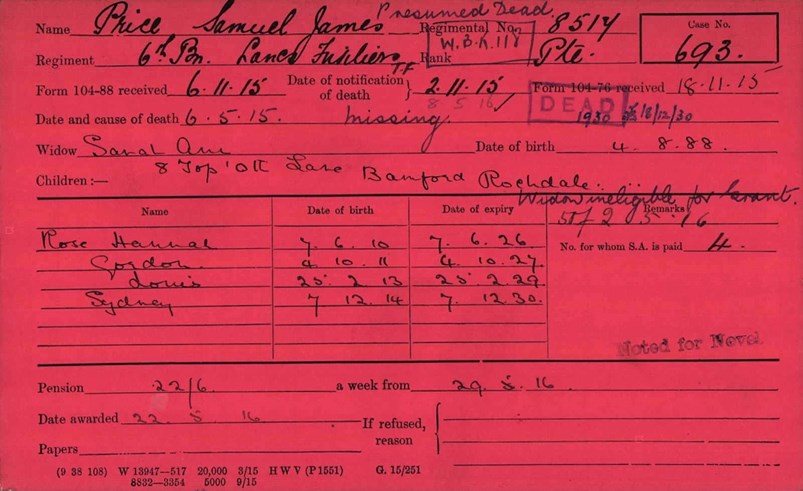 Presumed Dead.
Name Price Samuel James Regimental No. 8514 Case No.
W.B.R.118
Regiment 6th Bn. Lancs Fusiliers TF Rank Pte. 693.
Form 104-88 received 6.11.15 Date of notification of death } 2.11.15 Form 104-76 received 18.11.15
8 5 16
DEAD
Date and cause of death 6.5.15. missing. 1930 18/12/30
Widow Sarah Ann Date of birth 4.8.88.
8 Top 'O tt Lane Bamford Rochdale.
Children:— Widow ineligible for Grant.
Name Date of birth Date of expiry Remarks
2 5 16
Rose Hannah 7.6.10 7.6.26.
No. for whom S.A. is paid 4.
Gordon. 4 10 11 4.10.27.
Louis 25 2 13 25.2.29.
Sydney 7 12.14 7.12.30.
Noted for Novel
Pension 22/6 a week from 29.5.16.
Date awarded 22.5.16 If refused, reason {
Papers
(9 38 108) W 13947—517 20,000 3/15 H W V (P 1551) G. 15/251
8832—3354 5000 9/15